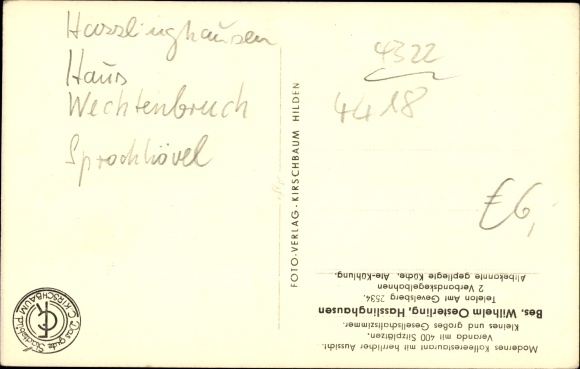 Hasslinghausen
Haus
Wechtenbruch
Sprockhövel
4322
4418
€6,
FOTO-VERLAG-KIRSCHBAUM HILDEN
Modernes Kaffeerestaurant mit herrlicher Aussicht.
Veranda mit 400 Sitzplätzen.
Kleines und großes Gesellschaftszimmer.
Bes. Wilhelm Oesterling, Hasslinghausen
Telefon Amt Gevelsberg 7534.
2 Verbandskegelbahnen
Altbekannte gepflegte Küche. Ate-Kühlung.
C. KIRSCHBAUM